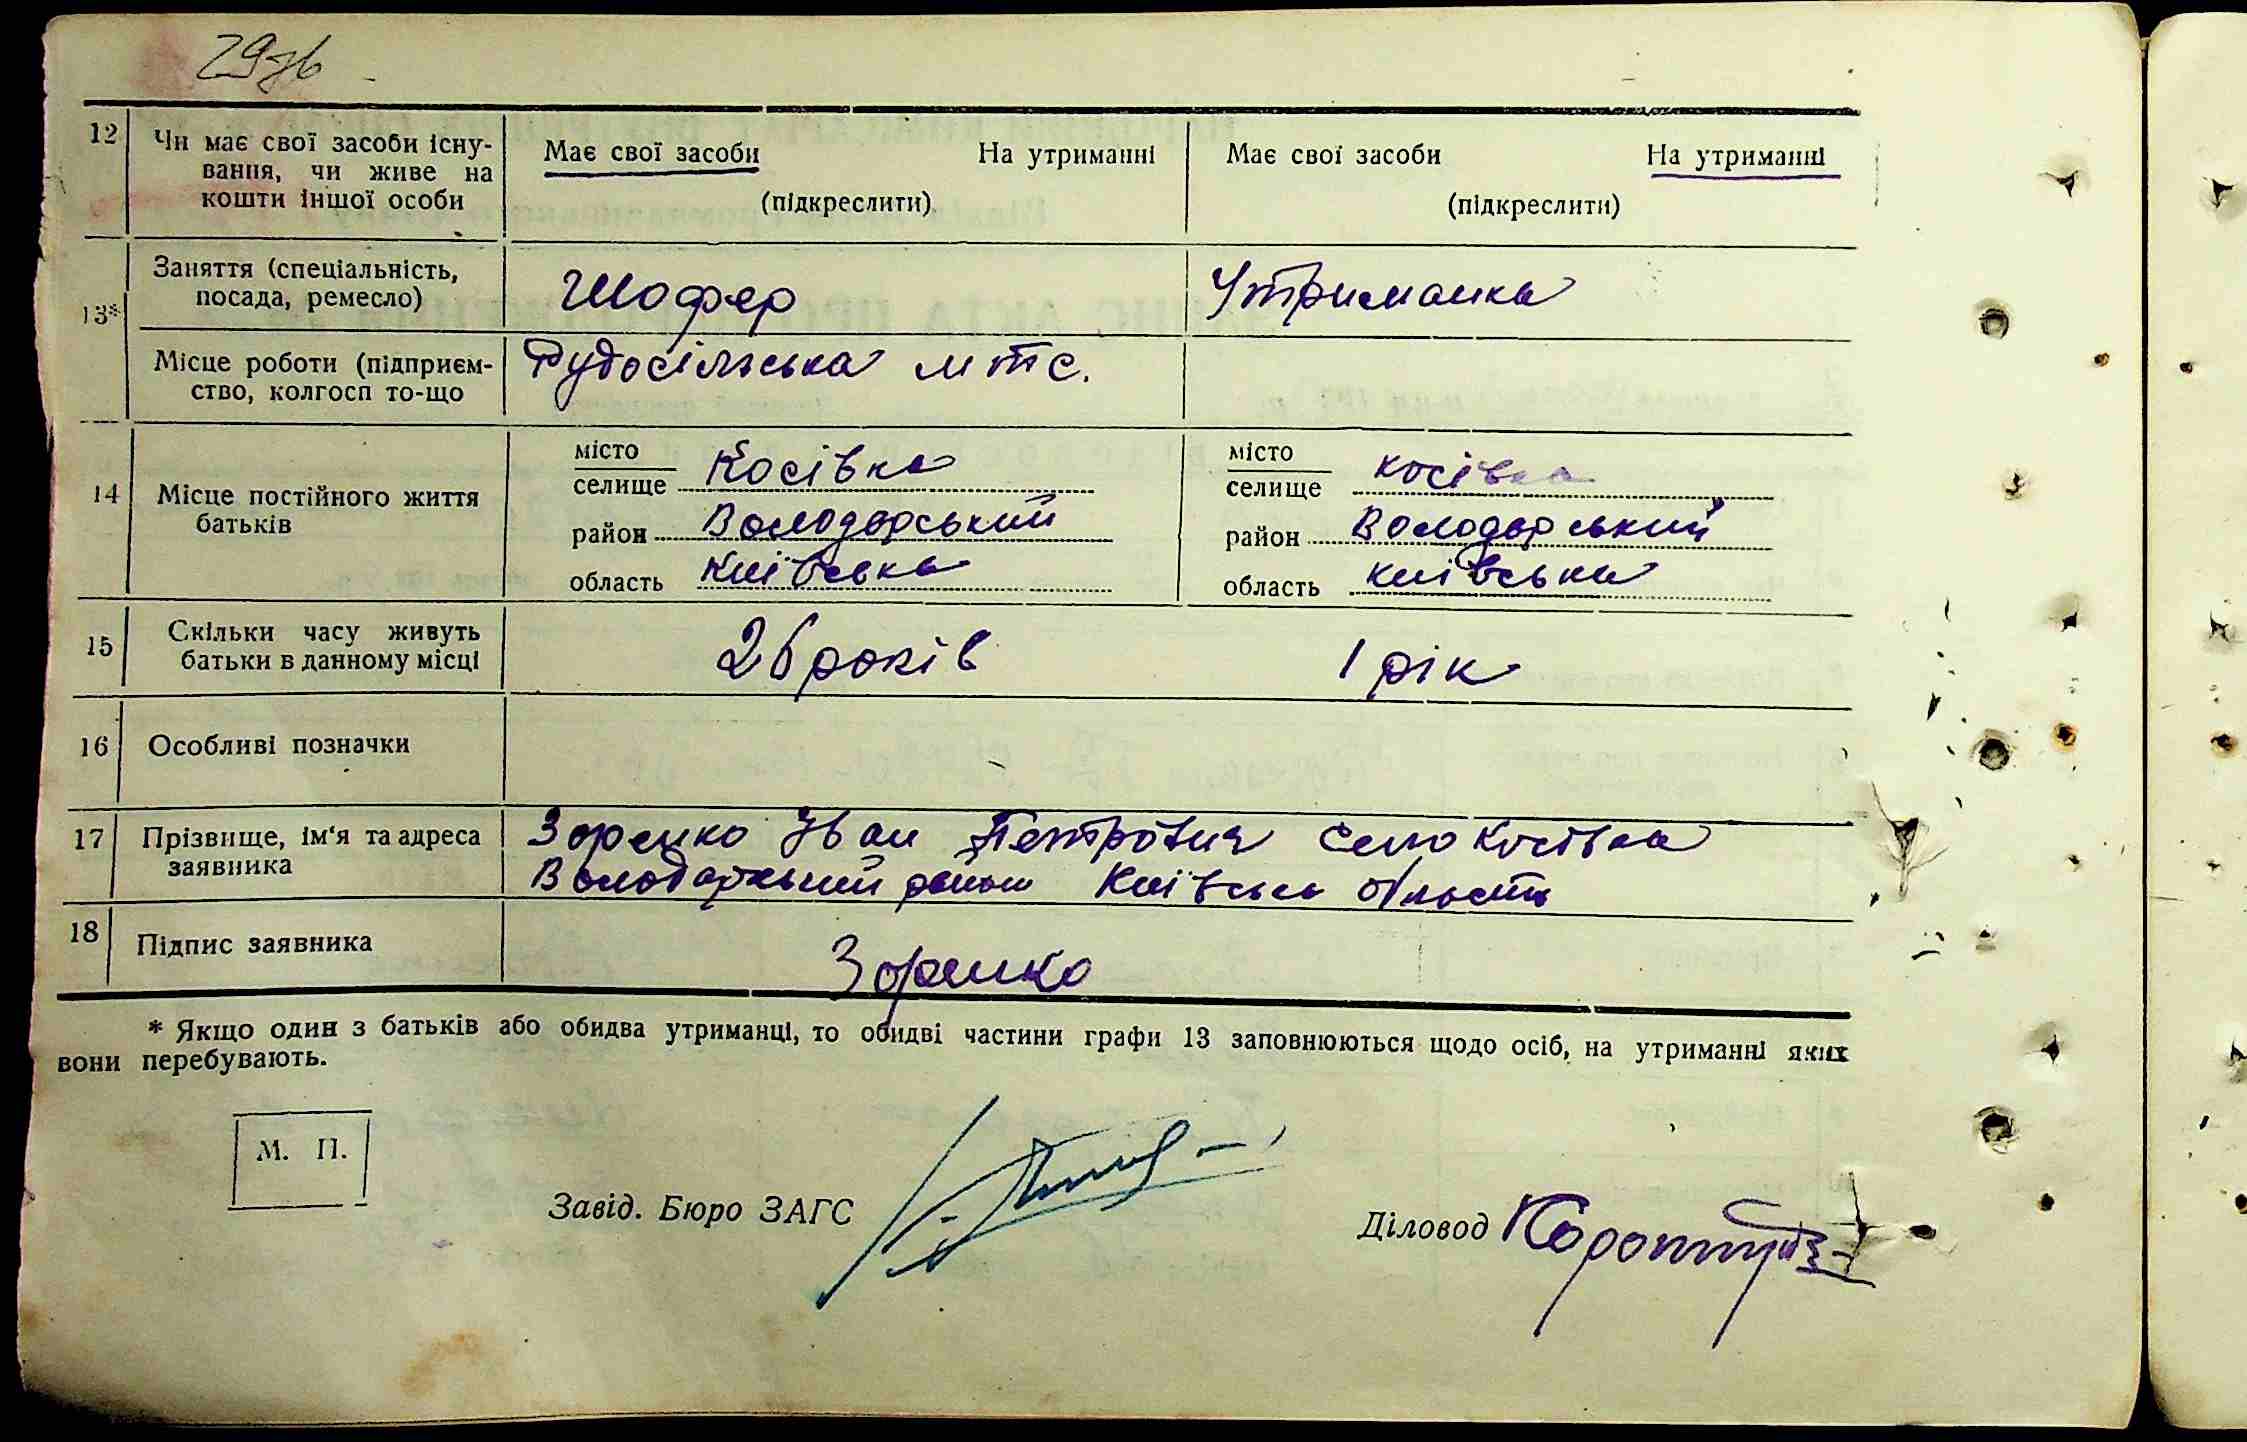 12 Чи має свої засоби існу-
вання, чи живе на
кошти іншої особи
Має свої засоби На утриманні
(підкреслити)
Має свої засоби На утриманні
(підкреслити)
13* Заняття (спеціальність,
посада, ремесло)
Шофер
Утриманка
Місце роботи (підприєм-
ство, колгосп то-що
Рудосільська мтс.
14 Місце постійного життя
батьків
місто
селище Косівка
район Володарський
область Київська
місто
селище косівка
район Володарський
область київська
15 Скільки часу живуть
батьки в данному місці
26 років
1 рік
16 Особливі позначки
17 Прізвище, ім'я та адреса
заявника
Зоренко Іван Петрович село Косівка
Володарський район Київська область
18 Підпис заявника
Зоренко
* Якщо один з батьків або обидва утриманці, то обидві частини графи 13 заповнюються щодо осіб, на утриманні яких
вони перебувають.
М. П.
Завід. Бюро ЗАГС
Діловод